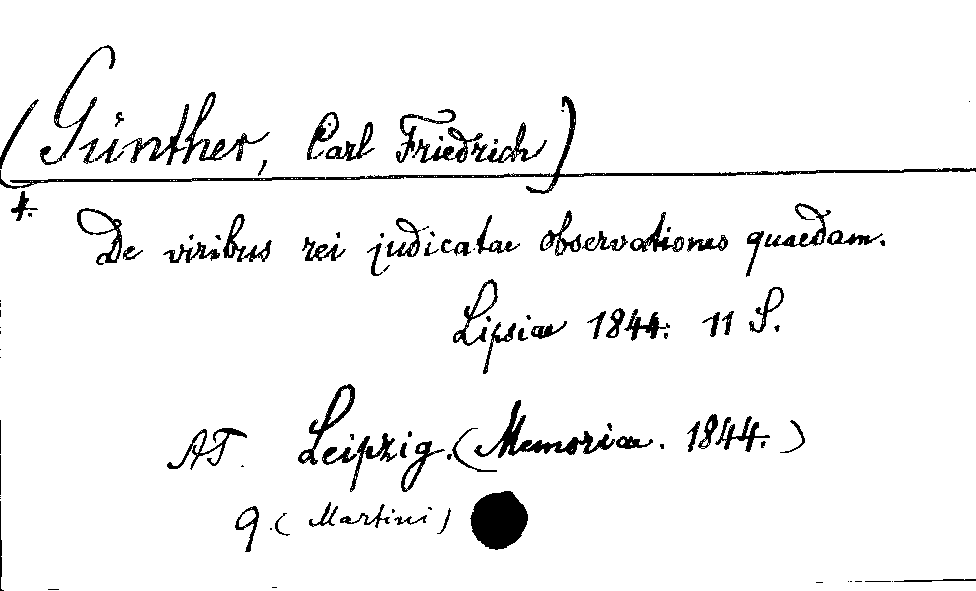 (Günther, Carl Friedrich)
4.
De viribus rei judicatae observationes quaedam.
Lipsiae 1844. 11 S.
AT. Leipzig. (Memoriae. 1844.)
9 (Martini)